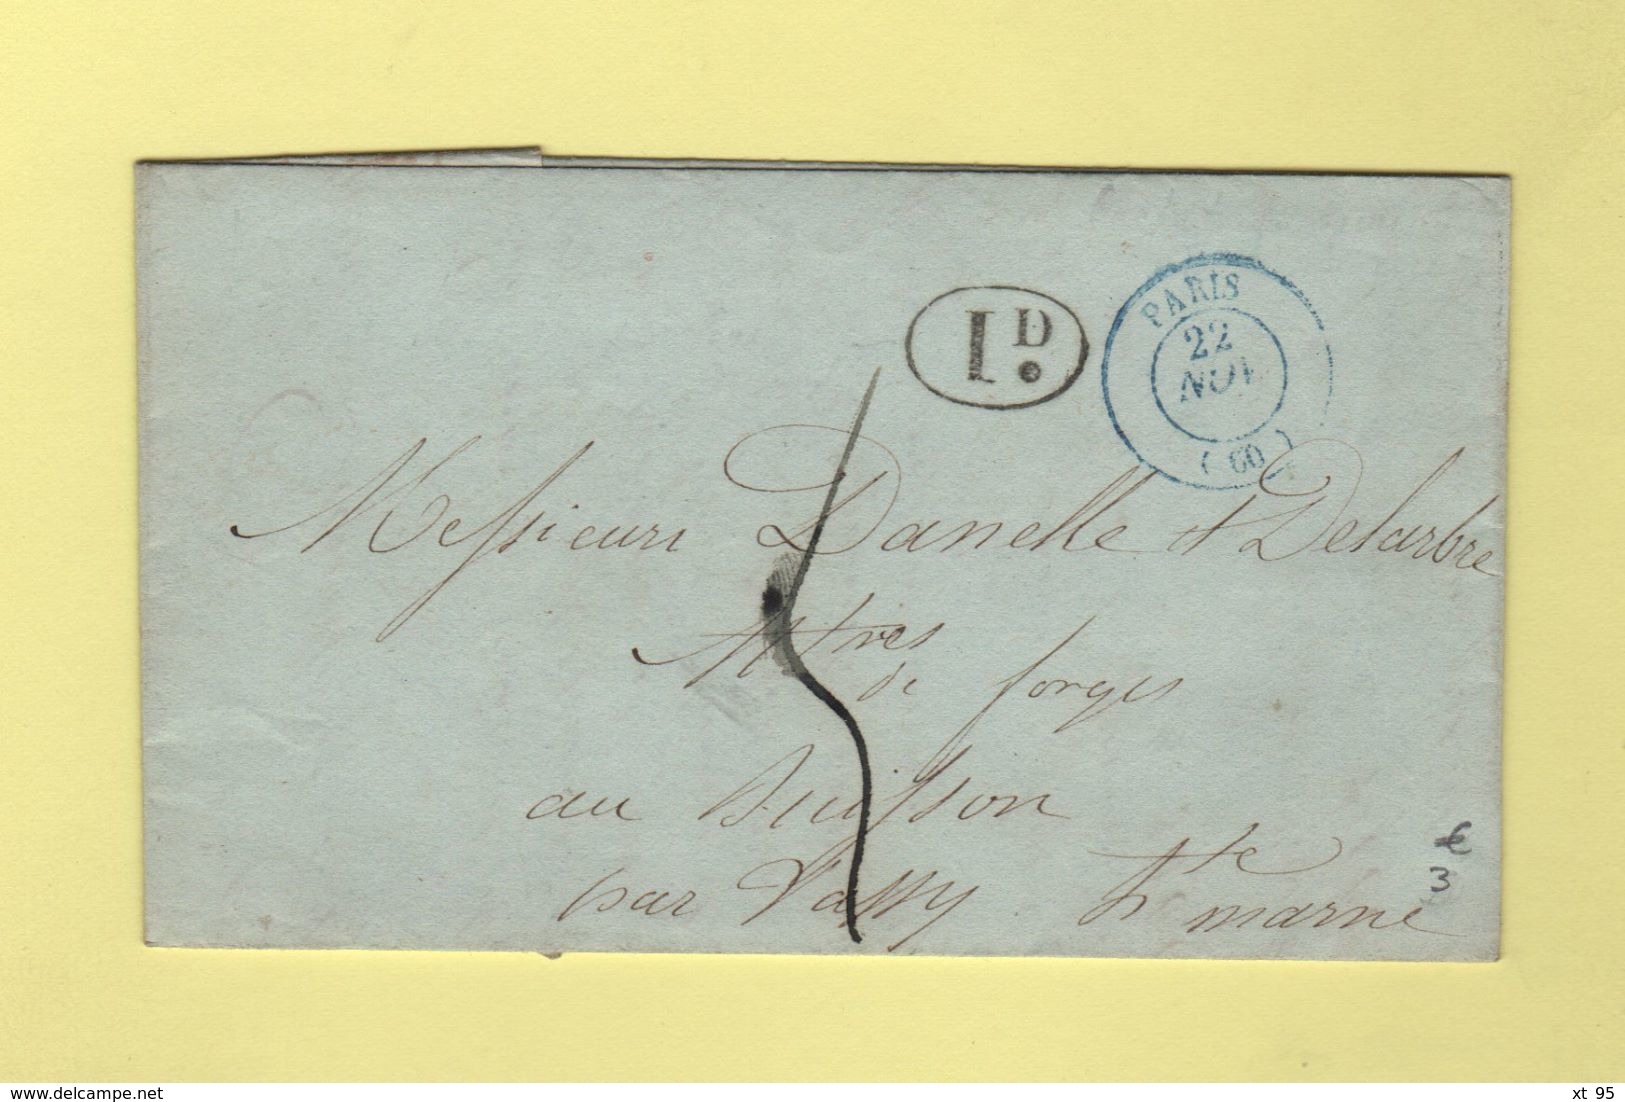 1D.
PARIS
22
NOV
(60)
Messieurs Danelle et Delarbre
Mtres
de forges
au Buisson
par Vassy hte marne
5
€
3
delcampe.net
xt 95